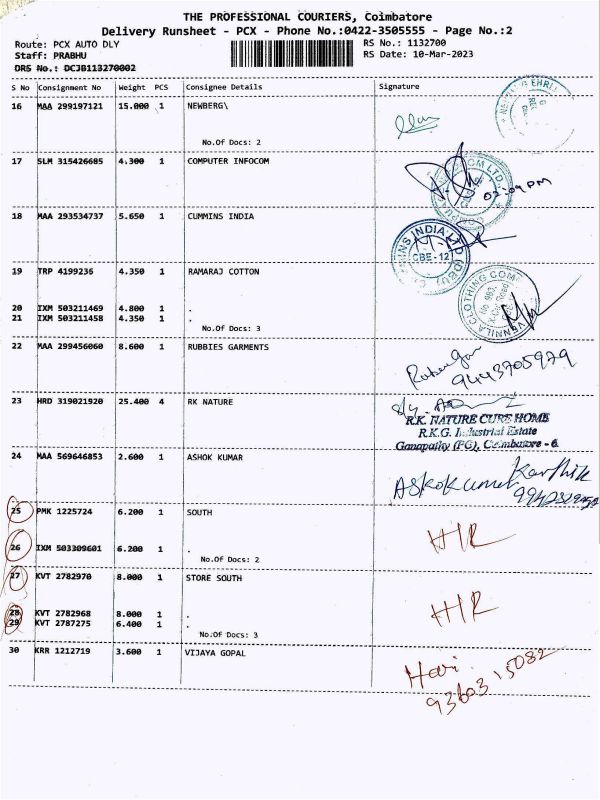 THE PROFESSIONAL COURIERS, Coimbatore
Delivery Runsheet - PCX - Phone No.:0422-3505555 - Page No.:2
Route: PCX AUTO DLY RS No.: 1132700
Staff: PRABHU RS Date: 10-Mar-2023
DRS No.: DCJB113270002
S No Consignment No Weight PCS Consignee Details Signature
16 MAA 299197121 15.000 1 NEWBERG\
No.Of Docs: 2
17 SLM 315426685 4.300 1 COMPUTER INFOCOM
02:09 PM
18 MAA 293534737 5.650 1 CUMMINS INDIA
CBE-12
19 TRP 4199236 4.350 1 RAMARAJ COTTON
VENNILA CLOTHING COM
20 IXM 503211469 4.800 1 .
21 IXM 503211458 4.350 1 .
No.Of Docs: 3
22 MAA 299456060 8.600 1 RUBBIES GARMENTS
9443705979
23 HRD 319021920 25.400 4 RK NATURE
R.K. NATURE CURE HOME
R.K.G. Industrial Estate
Ganapathy (PO), Coimbatore - 6.
24 MAA 569646853 2.600 1 ASHOK KUMAR
Karthik
Askokumar
25 PMK 1225724 6.200 1 SOUTH
H/R
26 IXM 503309601 6.200 1 .
No.Of Docs: 2
27 KVT 2782970 8.000 1 STORE SOUTH
H/R
28 KVT 2782968 8.000 1 .
29 KVT 2787275 6.400 1 .
No.Of Docs: 3
30 KRR 1212719 3.600 1 VIJAYA GOPAL
Hari
9360315082